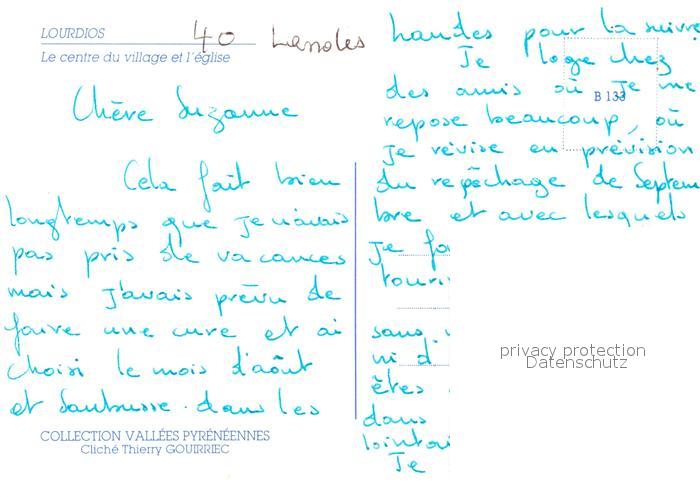 LOURDIOS
40 Landes
Le centre du village et l'église
Chère Suzanne
Cela fait bien
longtemps que je n'avais
pas pris de vacances
mais j'avais prévu de
faire une cure et ai
choisi le mois d'août
et Saubusse dans les
COLLECTION VALLÉES PYRÉNÉENNES
Cliché Thierry GOUIRRIEC
landes pour la suivre
Je loge chez
des amis où je me
B 133
repose beaucoup, où
je révise en prévision
du repêchage de Septem
bre et avec lesquels
je
sans
ni d'
êtes
dans
Je
privacy protection
Datenschutz